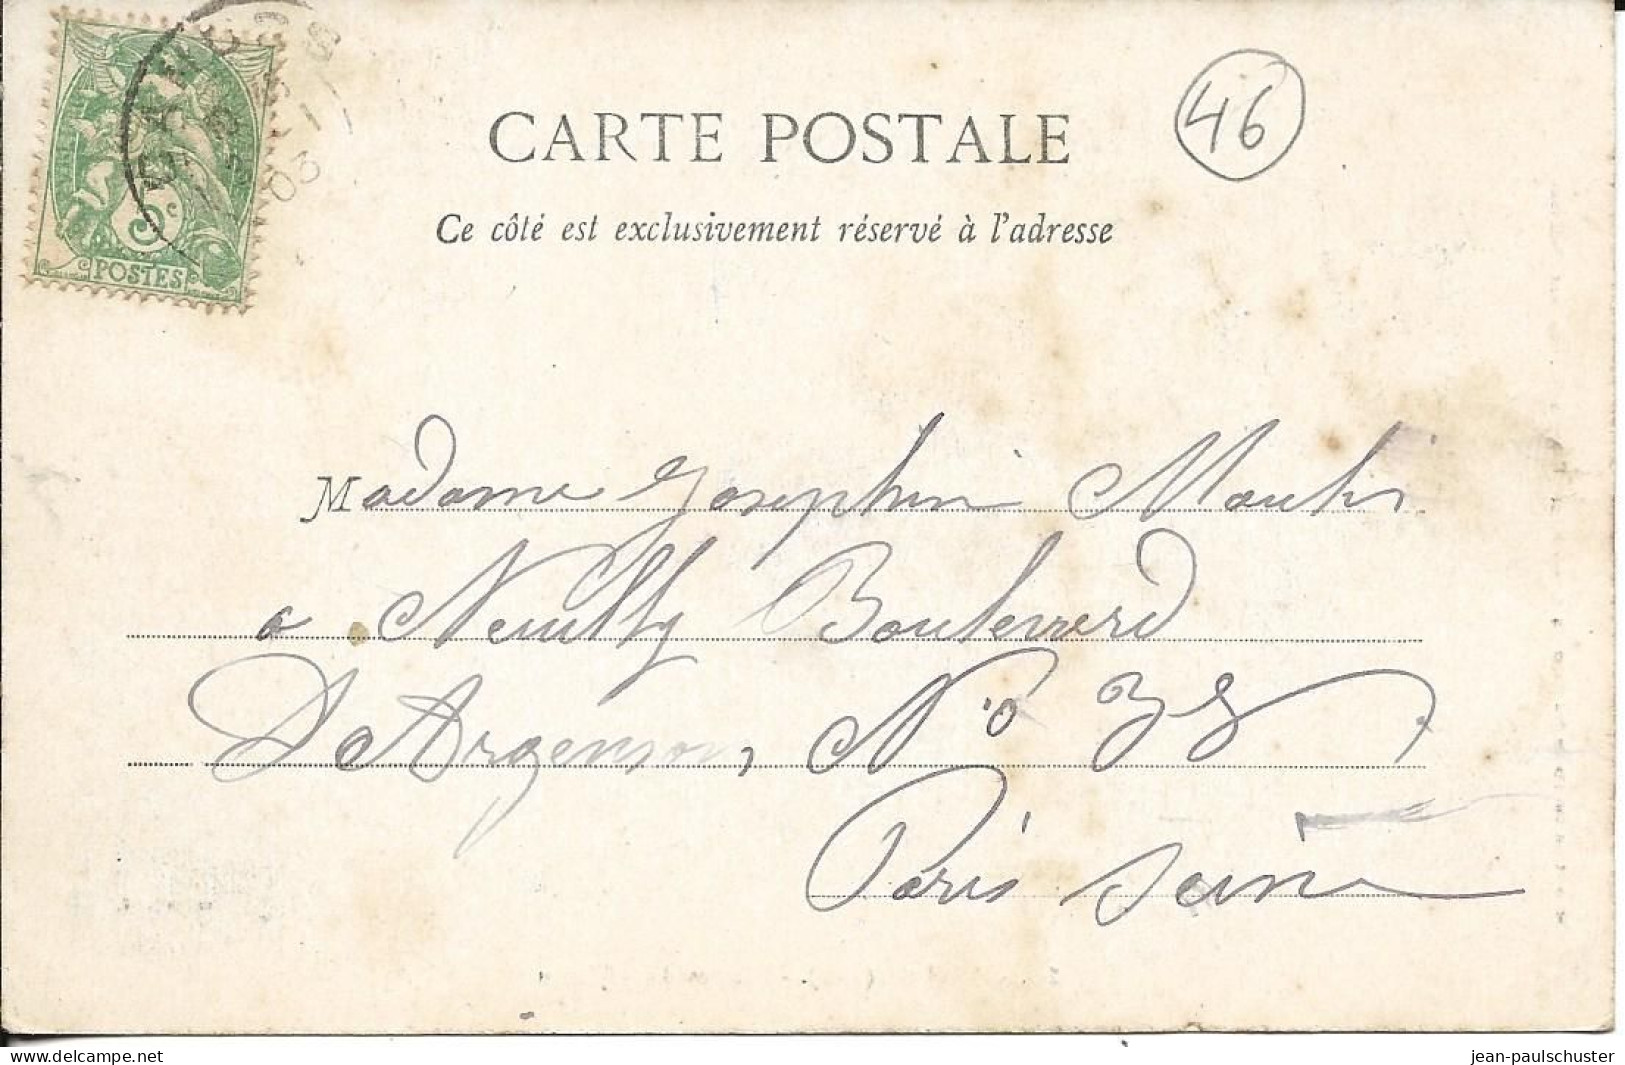 CAHORS
03
5c
POSTES
46
CARTE POSTALE
Ce côté est exclusivement réservé à l'adresse
Madame Josephin
a Neuilly Boulevverd
De Argenson, No 38
Paris Seine
www.delcampe.net
jean-paulschuster